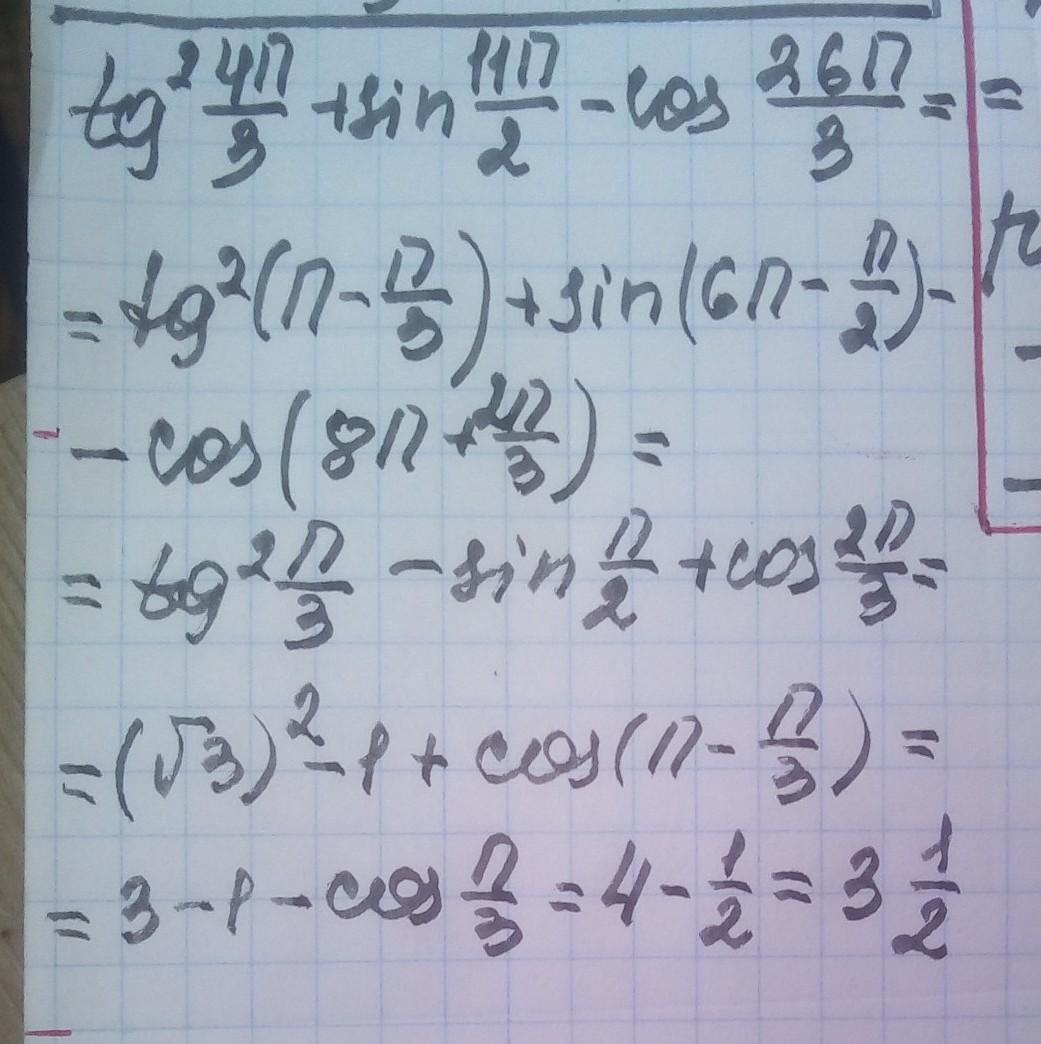 tg² 4π/3 + sin 11π/2 - cos 26π/3 = =
= tg²(π - π/3) + sin(6π - π/2) -
- cos(8π + 2π/3) =
= tg² π/3 - sin π/2 + cos 2π/3 =
= (√3)² - 1 + cos(π - π/3) =
= 3 - 1 - cos π/3 = 4 - 1/2 = 3 1/2